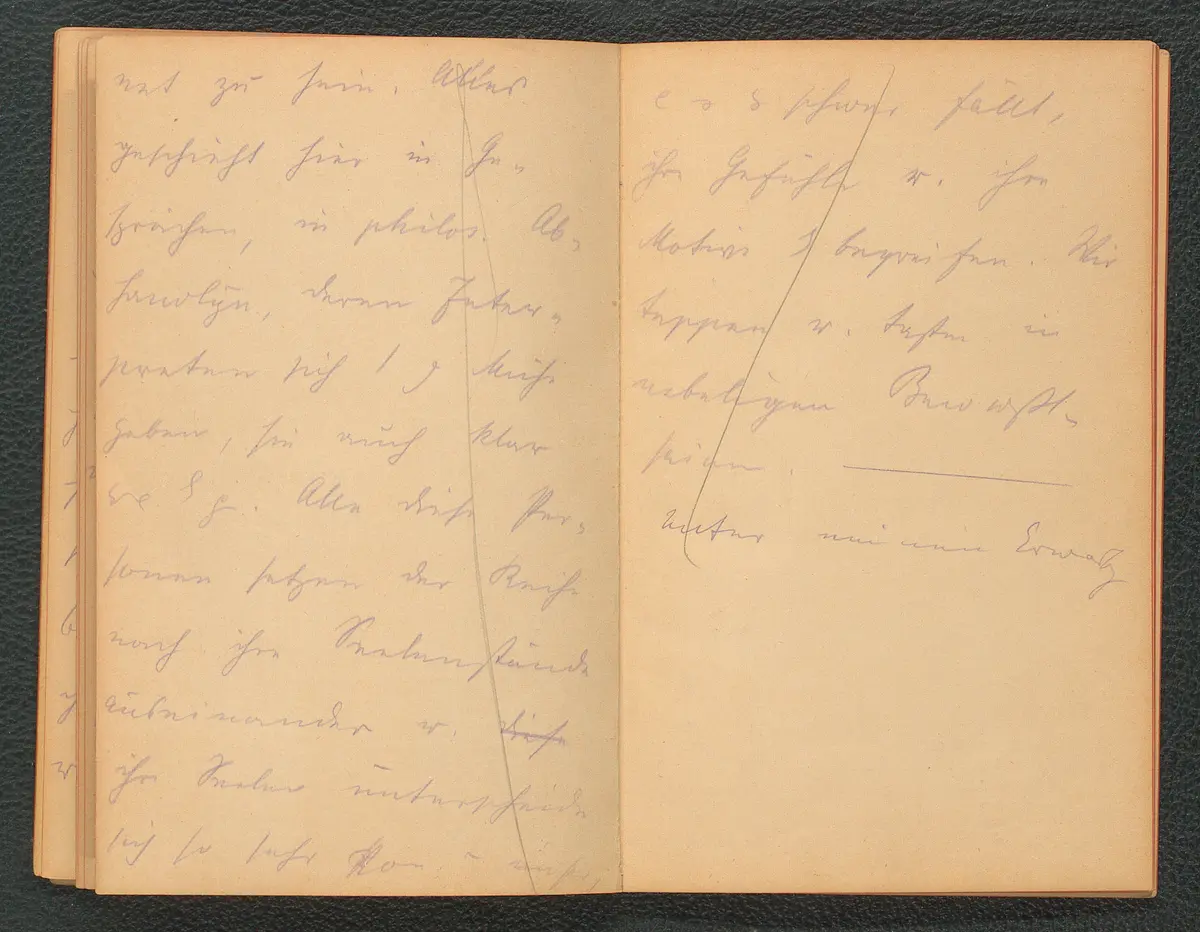 net zu sein. Alles
geschieht hier in Ge-
sprächen, in philos. Ab-
handlgn, deren Inter-
preten sich Mühe
geben, sie auch klar
Alle diese Per-
sonen setzen der Reihe
nach ihre Seelenstände
auseinander u. diese
ihre Seelen unterscheide
sich so sehr von
schwer fällt,
ihre Gefühle u. ihre
Motive z begreifen. Wir
tappen u. tasten in
nebeligen Bewußt-
seinen.
unter meinen